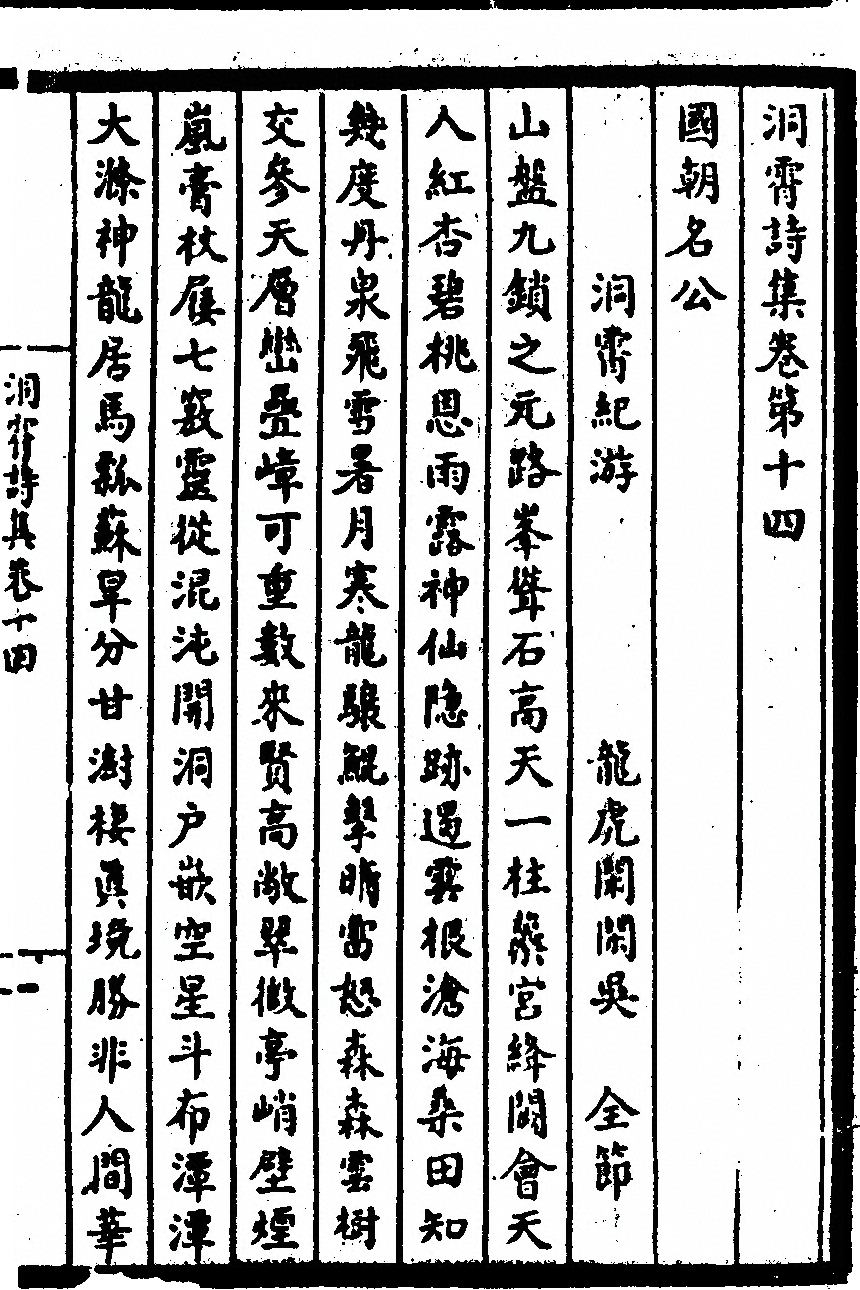 洞霄詩集卷第十四
國朝名公
洞霄紀游 龍虎閑閑吳 全節
山盤九鎖之元路峯聳石高天一柱蘂宮絳闕會天
人紅杏碧桃恩雨露神仙隐跡遏雲根滄海桑田知
幾度丹泉飛雪暑月寒龍驤鯤擊晴雷怒森森雲樹
交參天層巒疊嶂可重數來賢高敞翠微亭峭壁煙
嵐膏杖屨七竅靈從混沌開洞户嵌空星斗布潭潭
大滌神龍居馬瓢蘇旱分甘澍棲眞境勝非人間華
洞霄詩集卷十四